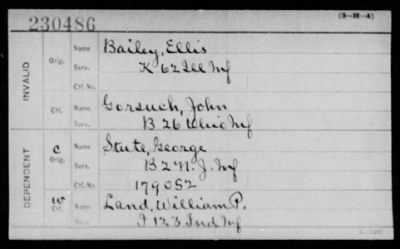 230486 (3-H-4)
INVALID Orig. Name Bailey, Ellis
Serv. K 62 Ill Inf
Ctf. No.
Ctf. Name Gorsuch, John
Serv. B 26 Ohio Inf
DEPENDENT C Orig. Name Stute, George
Serv. B 2 N. J. Inf
Ctf. No. 179052
W Ctf. Name Land, William P.
Serv. I 123 Ind Inf